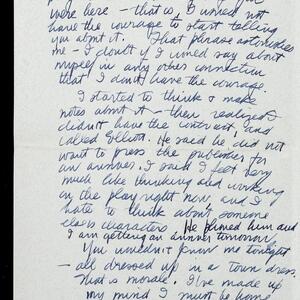 were here — that is, I would not
have the courage to start telling
you about it. That phrase astonishes
me — I doubt if I would say about
myself in any other connection
that I don't have the courage.
I started to think & make
notes about it — then realized I
didn't have the contract, and
called Elliott. He said he did not
want to press the publisher for
an answer. I said I felt very
much like thinking and working
on the play right now, and I
hate to think about someone
else's characters. He phoned him and
I am getting an answer tomorrow.
You wouldn't know me tonight
— all dressed up in a town dress.
That is morale. I've made up
my mind I must be home